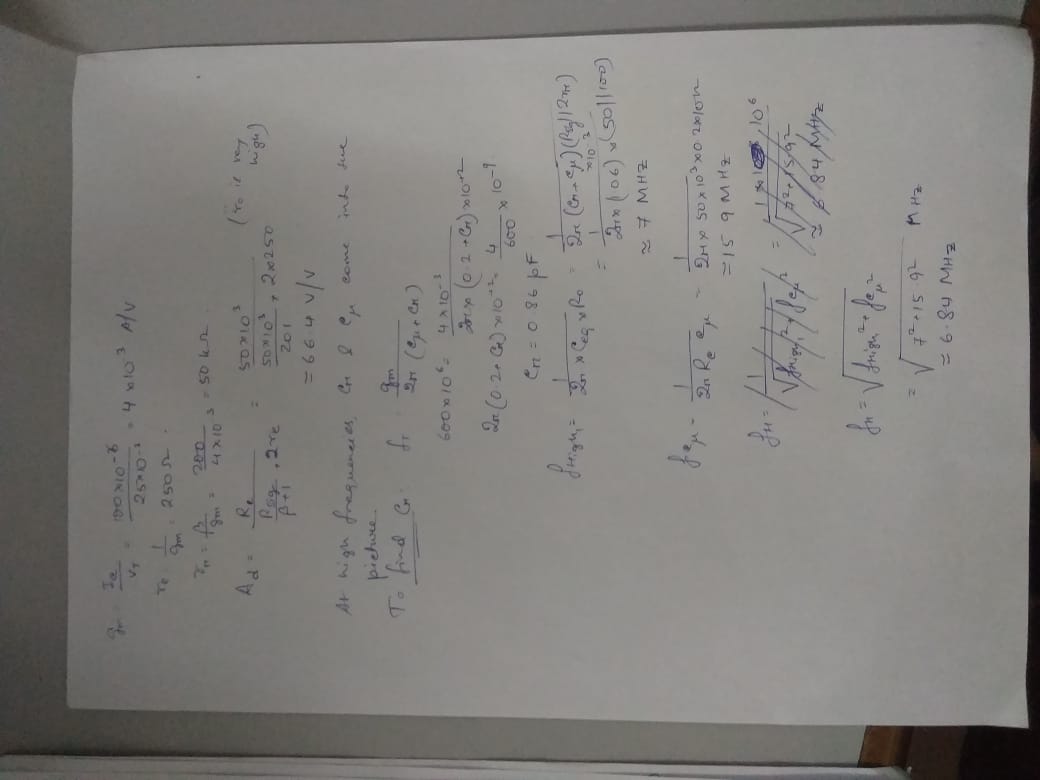 gm = Ic/VT = 100×10^-6 / 25×10^-3 = 4×10^-3 A/V
re = 1/gm = 250Ω.
rπ = β/gm = 200 / 4×10^-3 = 50 kΩ.
Ad = Rc / (Rsig/(β+1) + 2re) = 50×10^3 / (50×10^3/201 + 2×250) (ro is very high)
= 66.4 V/V
At high frequencies, Cπ & Cμ come into the
picture.
To find Cπ. fT = gm / 2π(Cμ+Cπ)
600×10^6 = 4×10^-3 / 2π×(0.2+Cπ)×10^-12
2π(0.2+Cπ)×10^-12 = 4/600 × 10^-9
Cπ = 0.86 pF
fHigh1 = 1 / 2π×Ceq×Ro = 1 / 2π(Cπ+Cμ)(Rsig||2rπ)
= 1 / 2π×(1.06)×(50||100) ×10^-3
≈ 7 MHz
fCμ = 1 / 2π Rc Cμ = 1 / 2π×50×10^3×0.2×10^-12
= 15.9 MHz
fH = √(fHigh1² + fCμ²)
= √(7²+15.9²) MHz
≈ 6.84 MHz